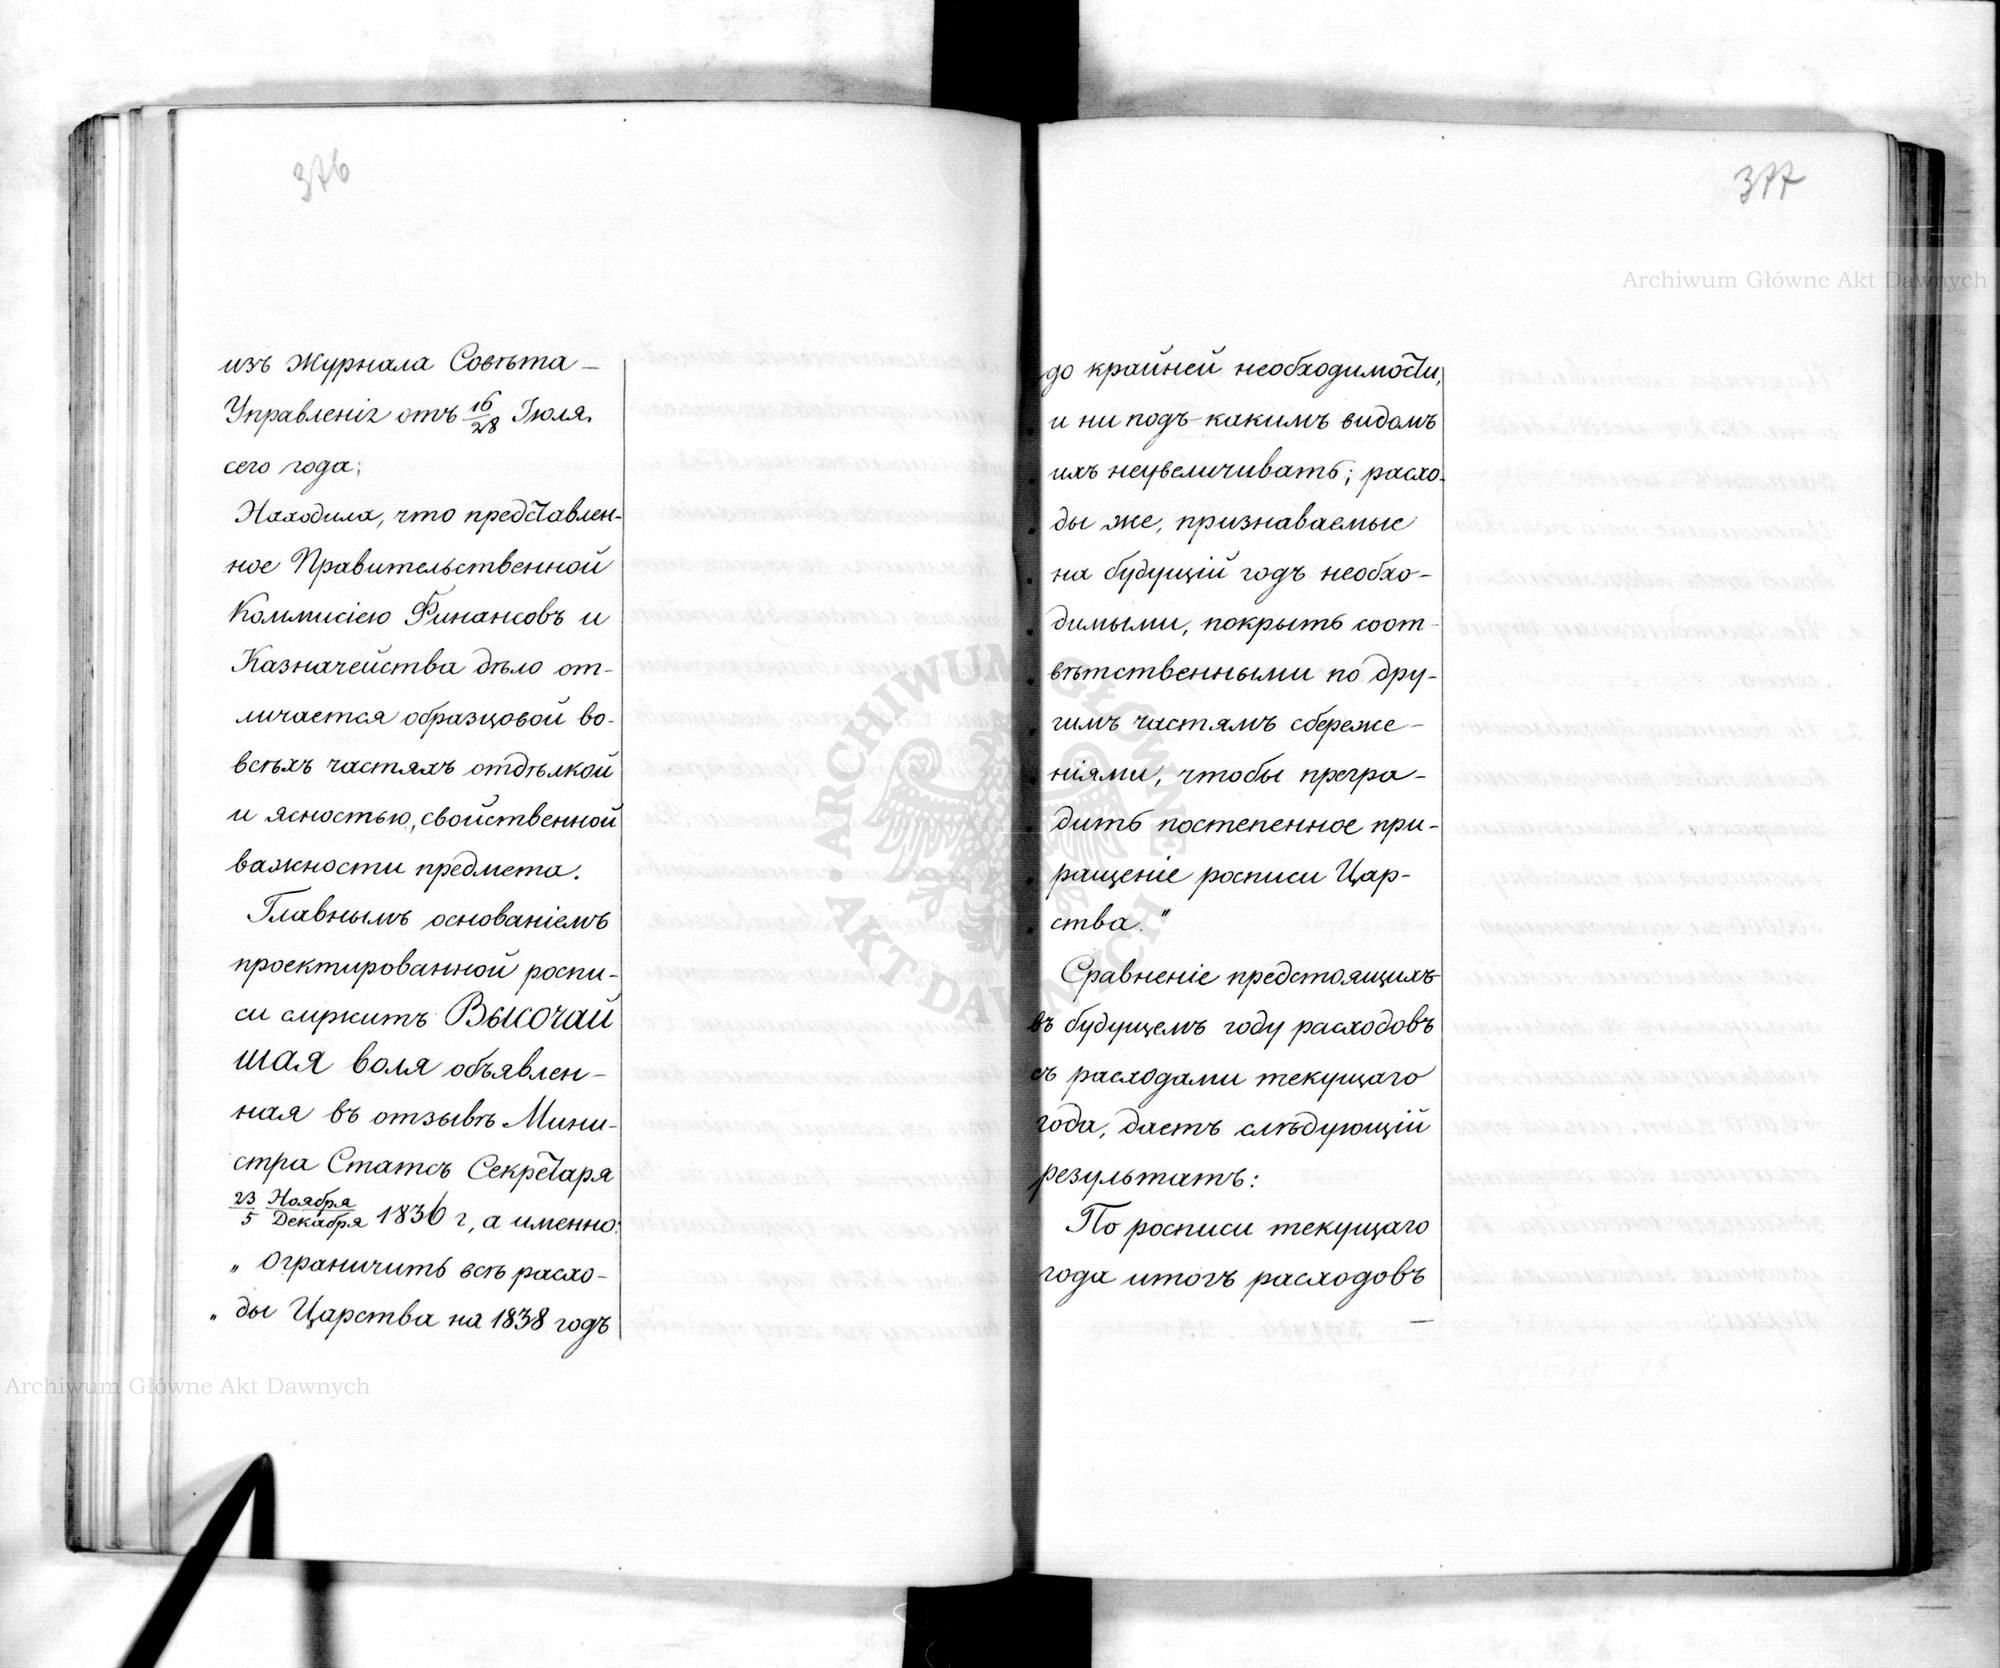 376
изъ Журнала Совѣта –
Управленія отъ 16/28 Іюля
сего года;
Находила, что представлен-
ное Правительственной
Коммисіею Финансовъ и
Казначейства дѣло от-
личается образцовой во-
всѣхъ частяхъ отдѣлкой
и ясностью, свойственной
важности предмета.
Главнымъ основаніемъ
проектированной роспи-
си служитъ Высочай
шая воля объявлен-
ная въ отзывѣ Мини-
стра Статсъ Секретаря
23 Ноября/5 Декабря 1836 г, а именно:
„ Ограничить всѣ расхо-
„ ды Царства на 1838 годъ
377
до крайней необходимости,
и ни подъ какимъ видомъ
ихъ неувеличивать; расхо-
ды же, признаваемые
на будущій годъ необхо-
димыми, покрыть соот-
вѣтственными по дру-
гимъ частямъ сбереже-
ніями, чтобы прегра-
дить постепенное при-
ращеніе росписи Цар-
ства."
Сравненіе предстоящихъ
въ будущемъ году расходовъ
съ расходами текущаго
года, даетъ слѣдующій
результатъ:
По росписи текущаго
года итогъ расходовъ
–
Archiwum Główne Akt Dawnych
Archiwum Główne Akt Dawnych
ARCHIWUM GŁÓWNE
AKT DAWNYCH